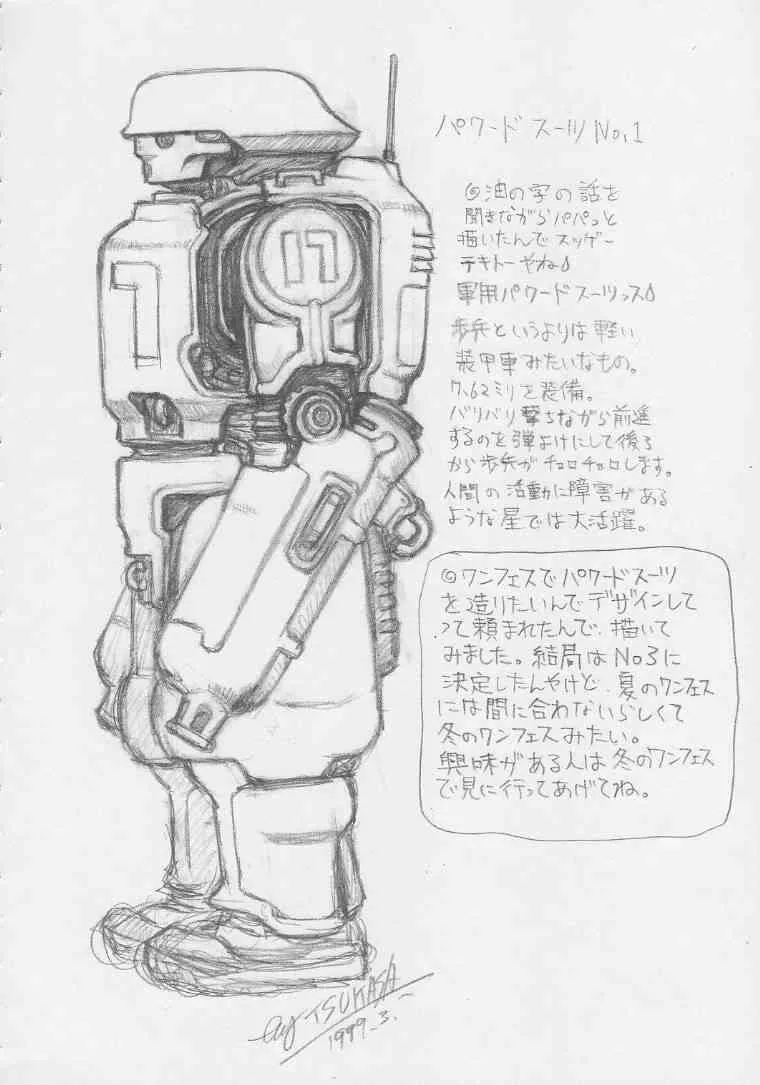 パワードスーツ No.1
◎油の字の話を
聞きながらパパっと
描いたんでスッゲー
テキトーやね♪
軍用パワードスーツっス♪
歩兵というよりは軽い
装甲車みたいなもの。
7.62ミリを装備。
バリバリ撃ちながら前進
するのを弾よけにして後ろ
から歩兵がチョロチョロします。
人間の活動に障害がある
ような星では大活躍。
◎ワンフェスでパワードスーツ
を造りたいんでデザインして
って頼まれたんで、描いて
みました。結局はNo3に
決定したんやけど、夏のワンフェス
には間に合わないらしくて
冬のワンフェスみたい。
興味がある人は冬のワンフェス
で見に行ってあげてね。
17
by TSUKASA
1999.3.